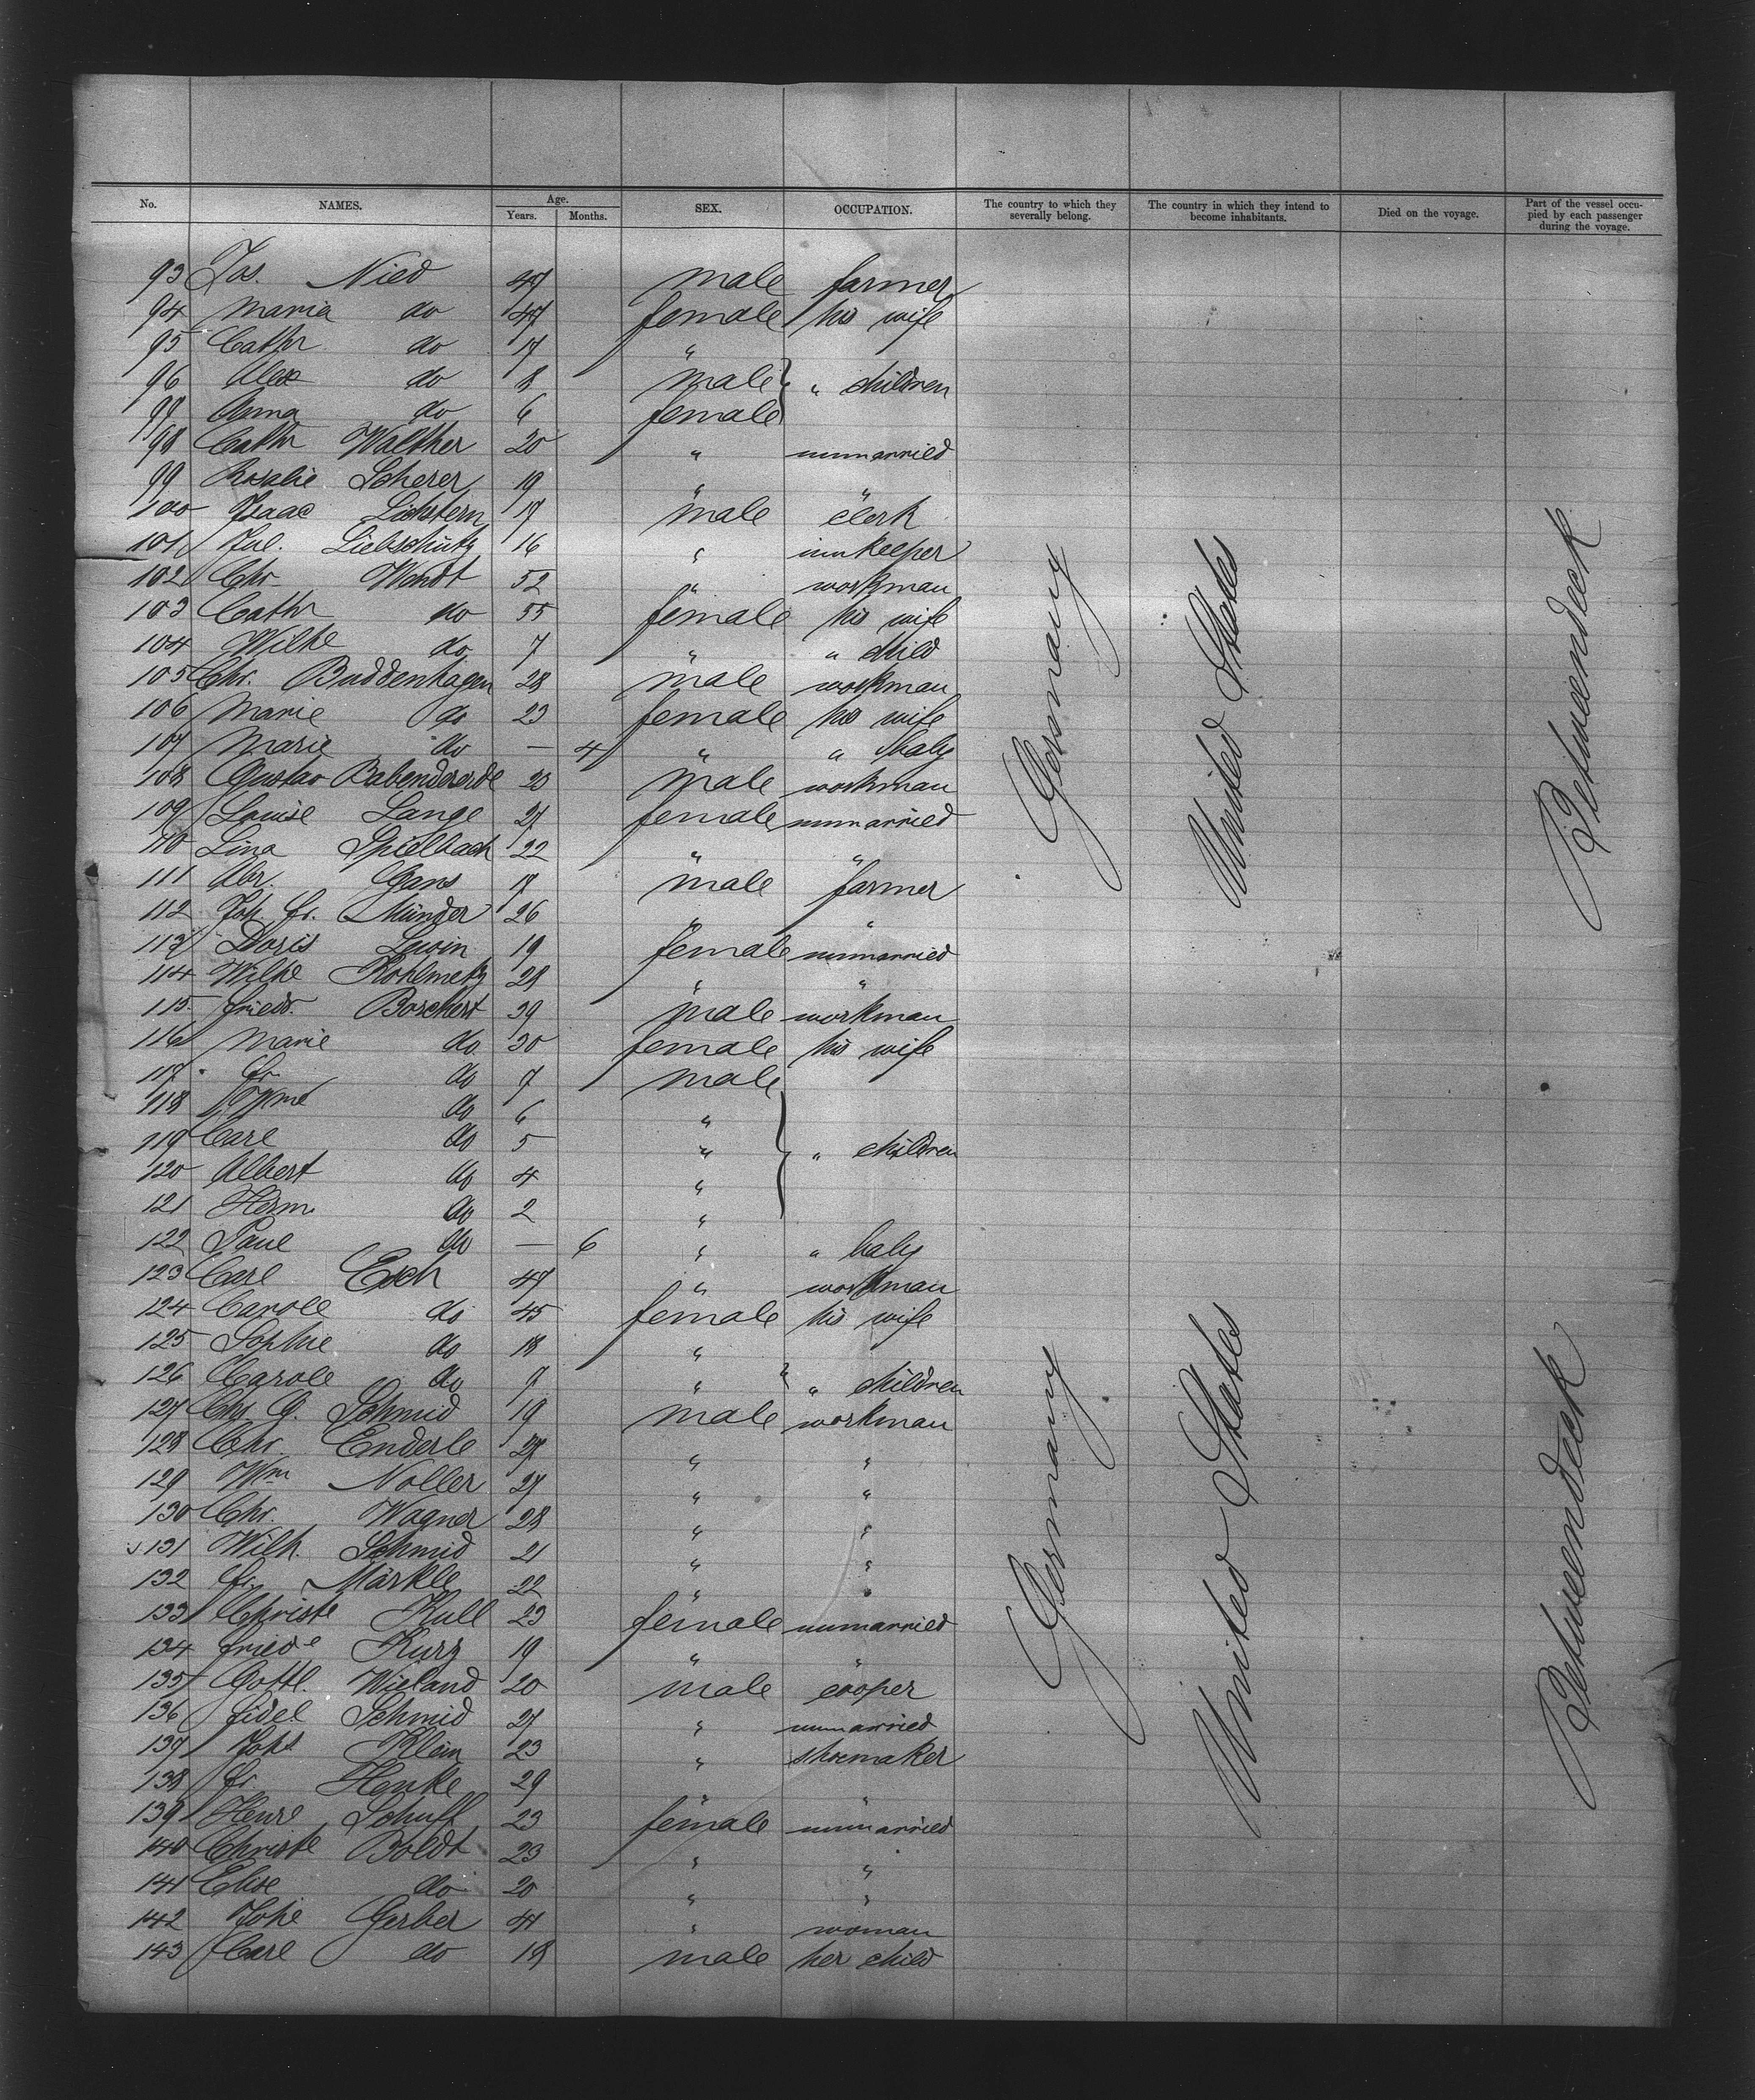 No. NAMES. Age. Years. Months. SEX. OCCUPATION. The country to which they severally belong. The country in which they intend to become inhabitants. Died on the voyage. Part of the vessel occupied by each passenger during the voyage.
93 Jos. Nied 47 male farmer
94 Maria do 47 female his wife
95 Cathr do 17 "
96 Alex do 8 male " children
97 Anna do 6 female
98 Cathr Walther 20 " unmarried
99 Rosalie Scherer 19 " "
100 Isaac Lichstern 17 male clerk
101 Jul. Liebschütz 16 " innkeeper
102 Chr. Wendt 52 " workman
103 Cathr do 55 female his wife
104 Wilhe do 7 " " child
105 Chr. Buddenhagen 28 male workman
106 Marie do 23 female his wife
107 Marie do — 4 " " baby
108 Gustav Babendererde 23 male workman
109 Louise Lange 27 female unmarried
110 Lina Spielbach 22 " "
111 Abr. Gans 17 male farmer
112 Joh. Fr. Münder 26 " "
113 Doris Lewin 19 female unmarried
114 Wilhe Kohlmetz 28 " "
115 Friedr. Borchert 39 male workman
116 Marie do 30 female his wife
117 Fr. do 7 male
118 do 6 "
119 Carl do 5 " " children
120 Albert do 4 "
121 Herm. do 2 "
122 Paul do — 6 " " baby
123 Carl Esch 47 " workman
124 Carole do 45 female his wife
125 Sophie do 18 "
126 Carole do 9 " " children
127 Chr. G. Schmid 19 male workman
128 Chr. Enderle 27 " "
129 Wm Noller 27 " "
130 Chr. Wagner 28 " "
131 Wilh. Schmid 21 " "
132 Fr. Märkle 22 " "
133 Christe Kull 23 female unmarried
134 Friede Kurz 19 " "
135 Gottl. Wieland 20 male cooper
136 Fidel Schmid 27 " unmarried
137 Klein 23 " shoemaker
138 Fr. Henke 29 " "
139 Henre Schuff 23 female unmarried
140 Christe Boldt 23 " "
141 Elise do 20 " "
142 Johe Gerber 41 " woman
143 Carl do 18 male her child
Germany United States Betweendeck
Germany United States Betweendeck